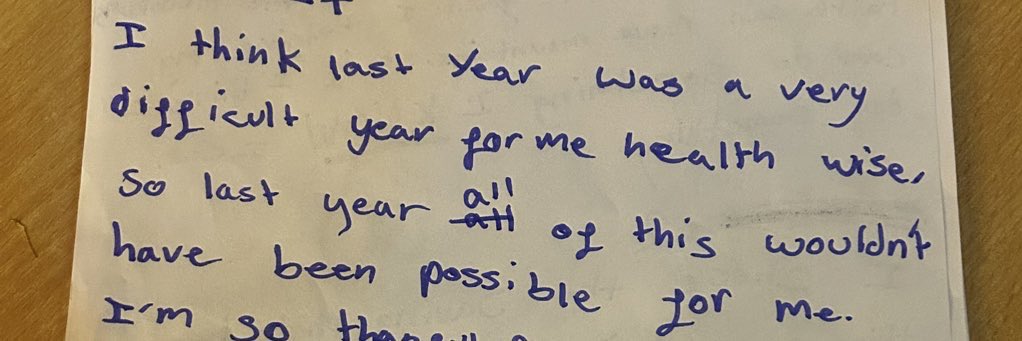 I think last year was a very
difficult year for me health wise,
so last year all of this wouldn't
have been possible for me.
I'm so